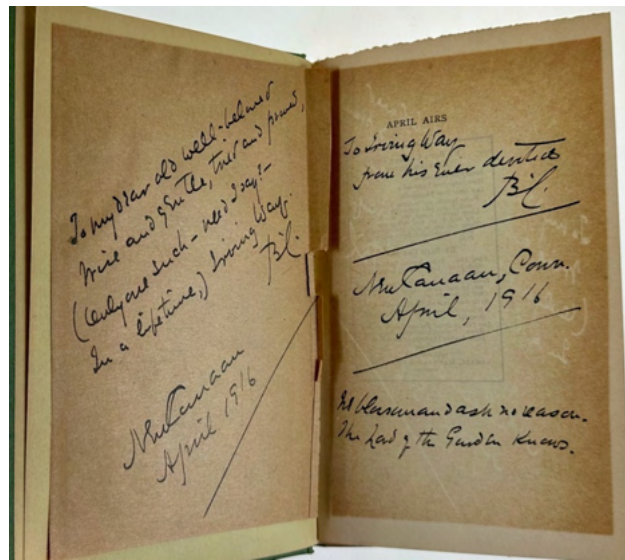 To my dear old well-beloved
Wise and gentle, tried and proved,
(Only one such – need I say? –
In a lifetime,) Irving Way.
B.C.
New Canaan
April 1916
APRIL AIRS
To Irving Way
from his ever devoted
B.C.
New Canaan, Conn.
April, 1916
We blossom and ask no reason.
The Lord of the Garden knows.